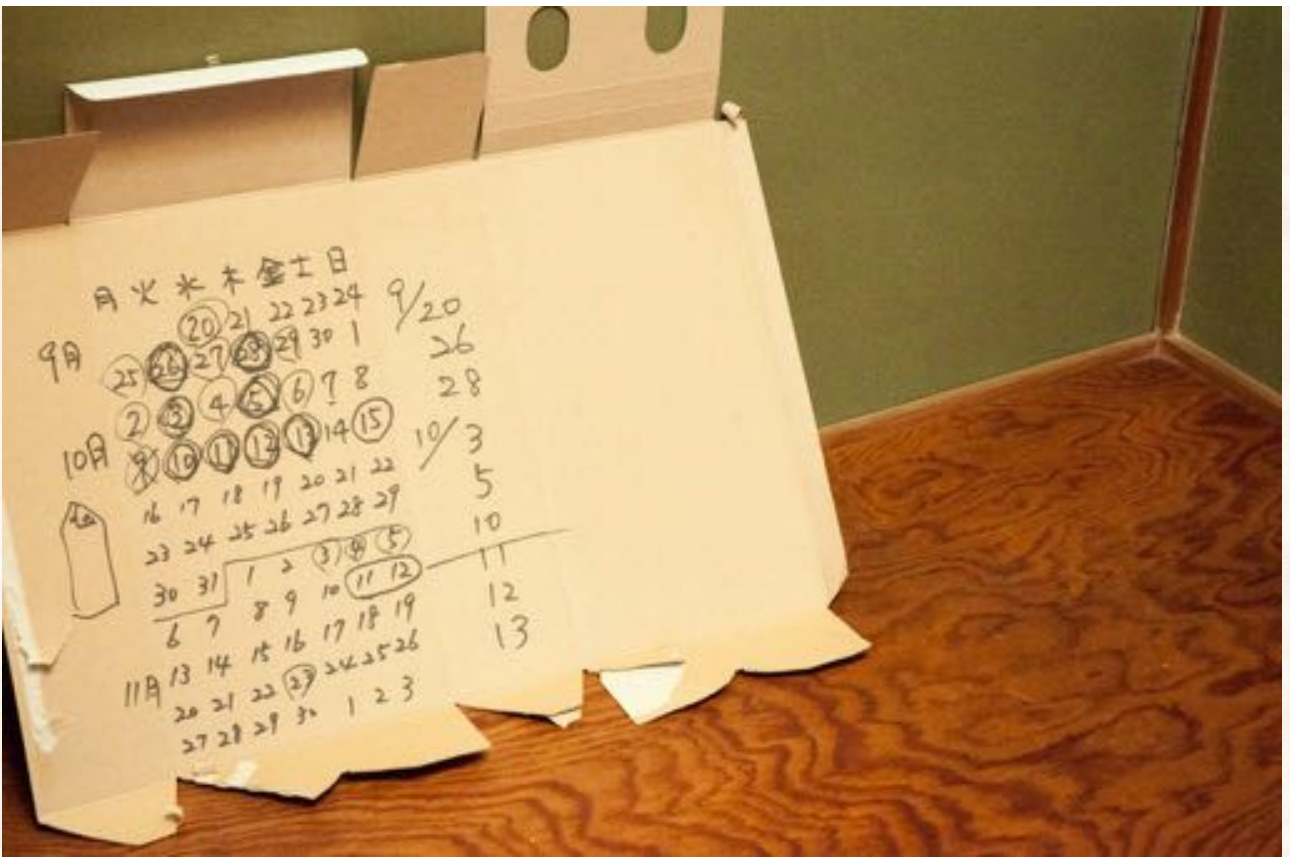 月 火 水 木 金 土 日
20 21 22 23 24
9月
25 26 27 28 29 30 1
2 3 4 5 6 7 8
10月
9 10 11 12 13 14 15
16 17 18 19 20 21 22
23 24 25 26 27 28 29
30 31 1 2 3 4 5
6 7 8 9 10 11 12
13 14 15 16 17 18 19
11月
20 21 22 23 24 25 26
27 28 29 30 1 2 3
9/20
26
28
10/3
5
10
11
12
13